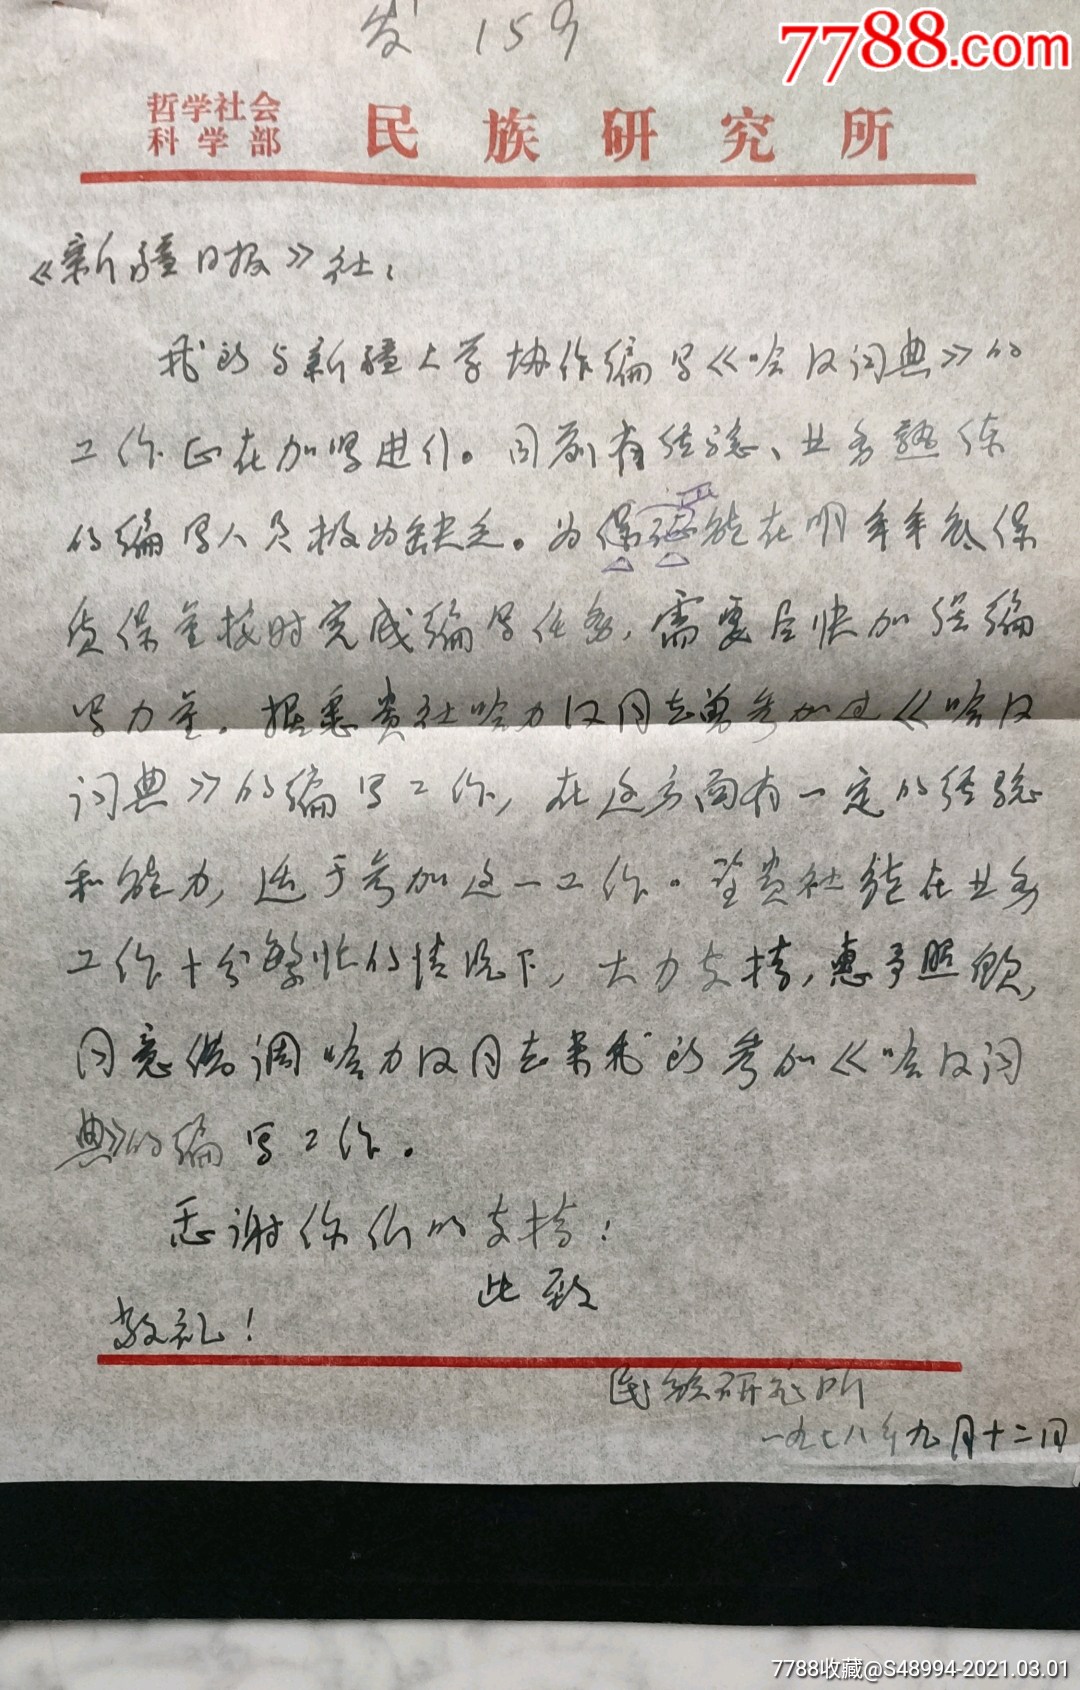 发 159
7788.com
哲学社会
科学部 民族研究所
《新疆日报》社：
我所与新疆大学协作编写《哈汉词典》的
工作正在加紧进行。目前有经验、业务熟练
的编写人员极为缺乏。为保证能在明年年底保
质保量按时完成编写任务，需要尽快加强编
写力量。据悉贵社哈力汉同志曾参加过《哈汉
词典》的编写工作，在这方面有一定的经验
和能力，适于参加这一工作。望贵社能在业务
工作十分繁忙的情况下，大力支持，惠予照顾，
同意借调哈力汉同志来我所参加《哈汉词
典》的编写工作。
感谢你们的支持！
此致
敬礼！
民族研究所
一九七八年九月十二日
7788收藏@S48994-2021.03.01